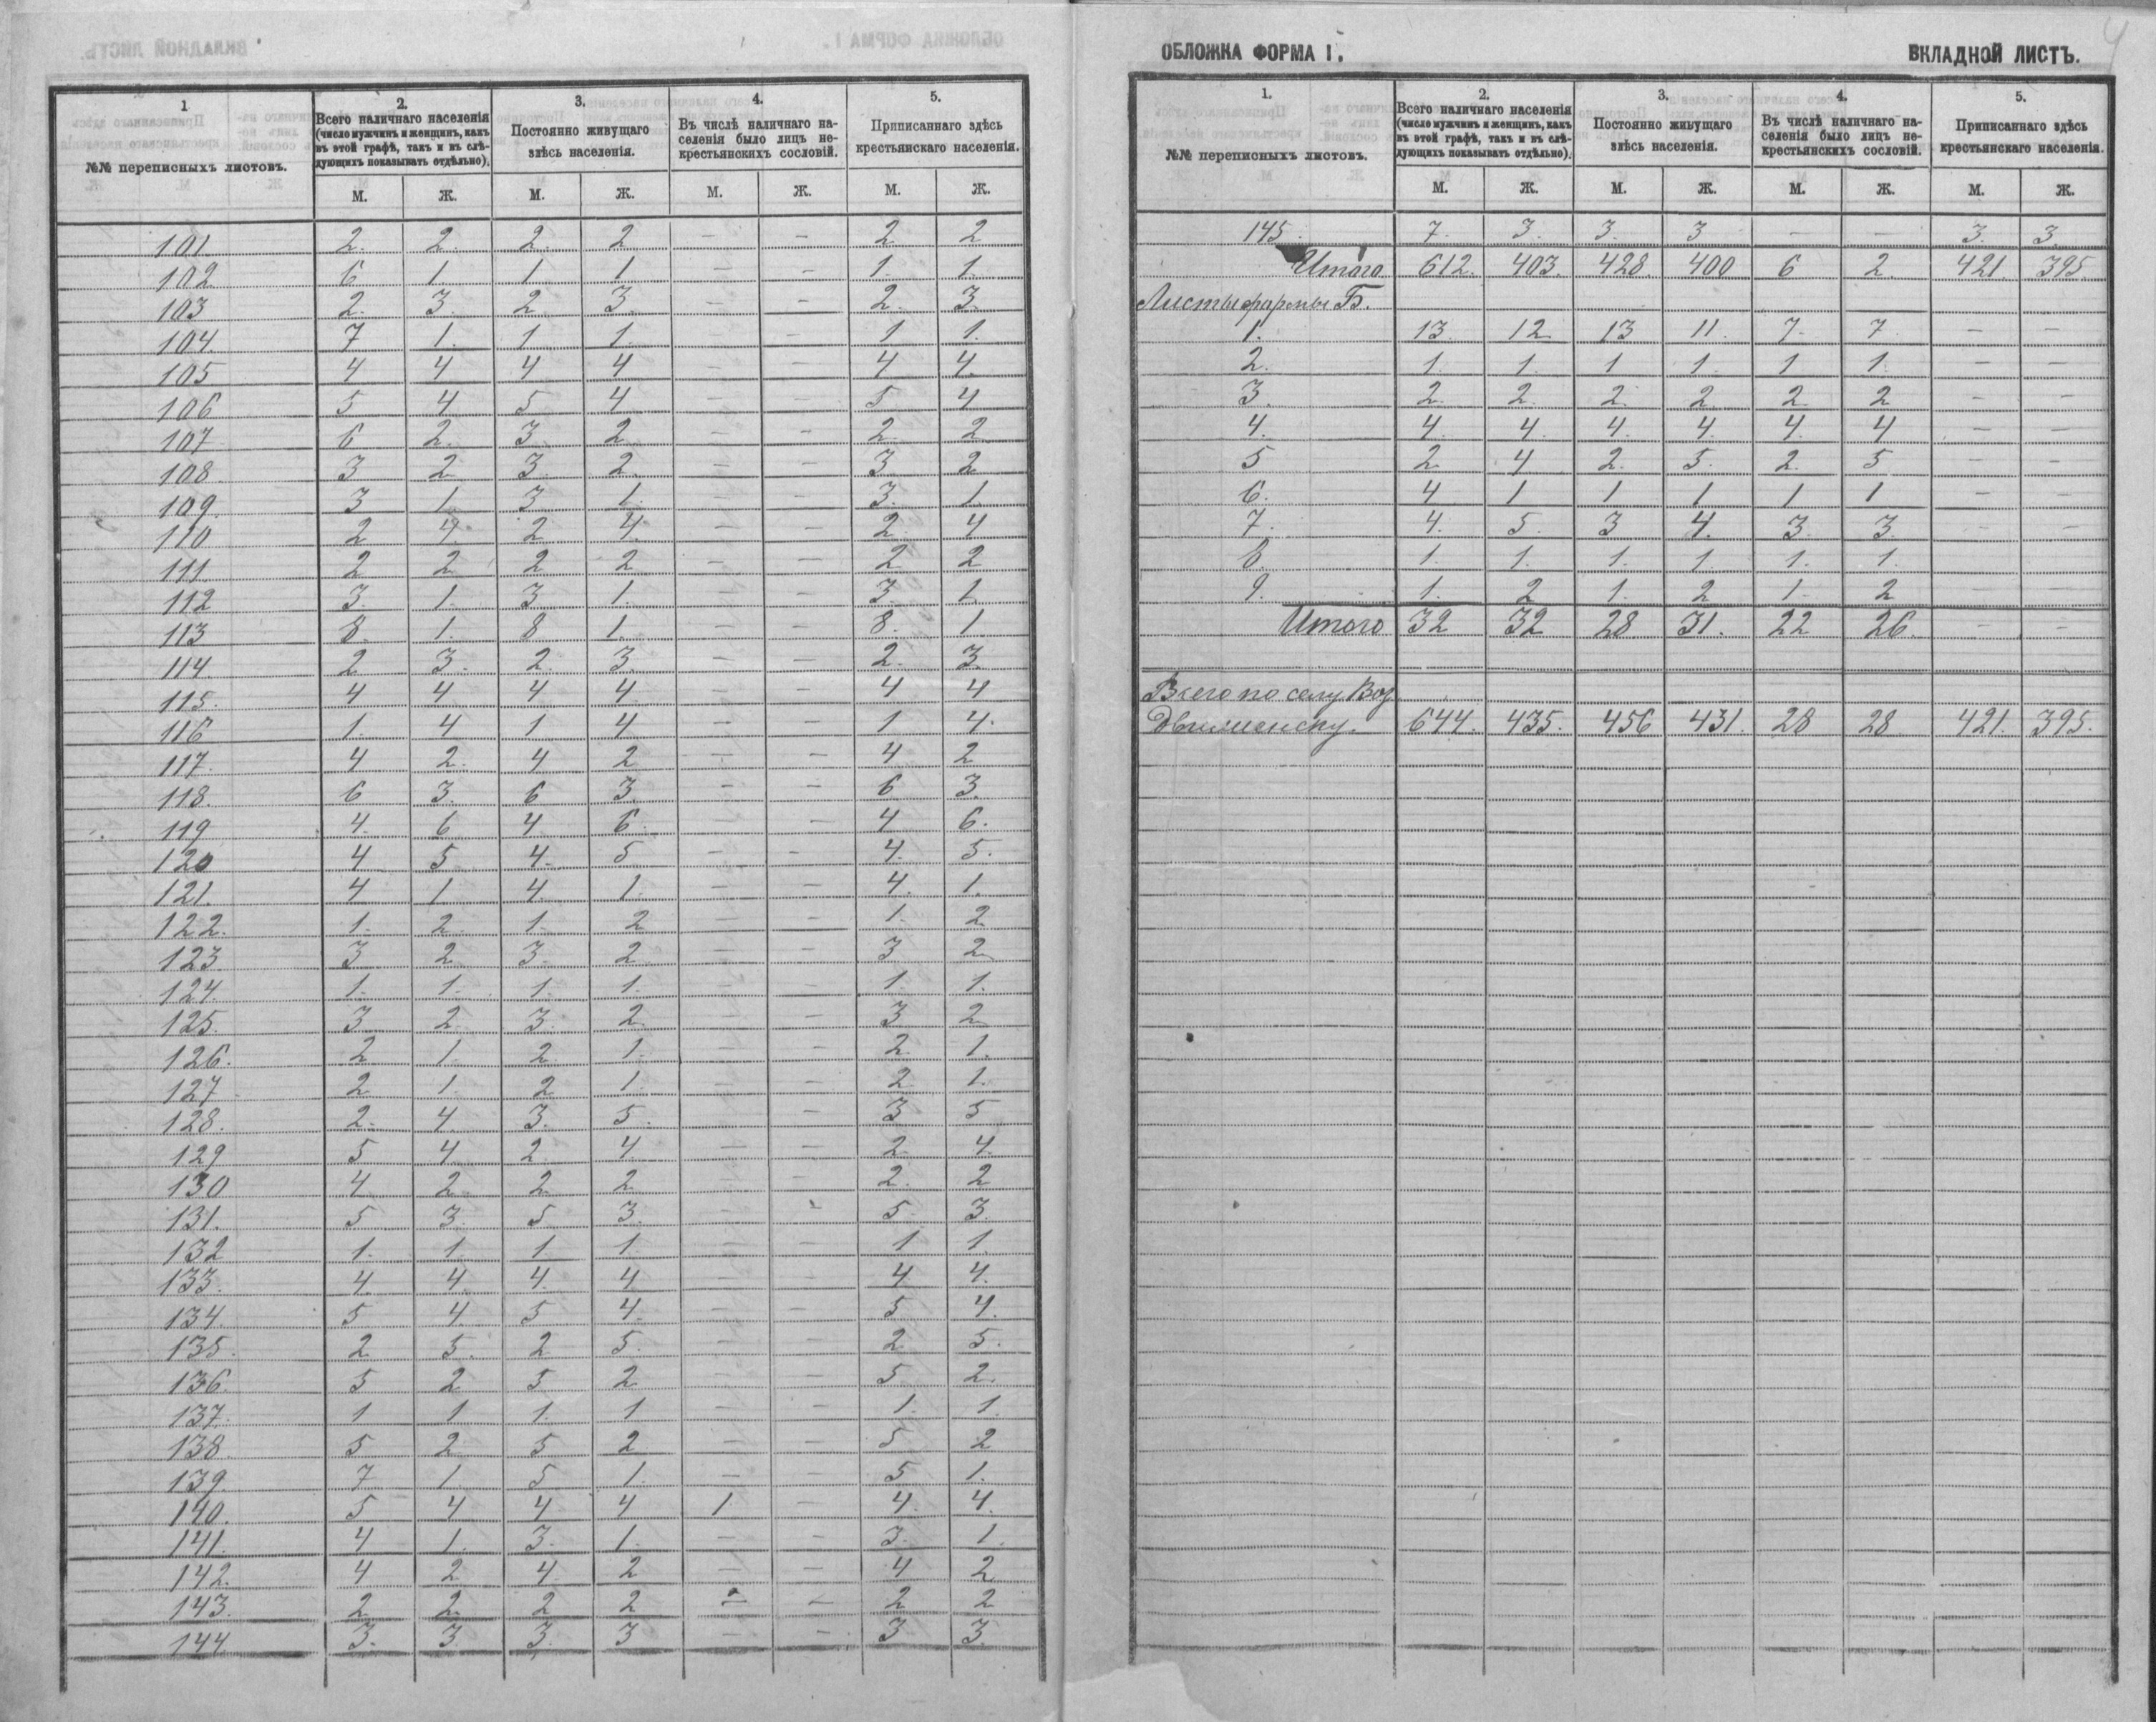 1
№№ переписныхъ листовъ.
2.
Всего наличнаго населенія
(число мужчинъ и женщинъ, какъ
въ этой графѣ, такъ и въ слѣ-
дующихъ показывать отдѣльно).
3.
Постоянно живущаго
здѣсь населенія.
4.
Въ числѣ наличнаго на-
селенія было лицъ не-
крестьянскихъ сословій.
5.
Приписаннаго здѣсь
крестьянскаго населенія.
М. Ж. М. Ж. М. Ж. М. Ж.
101. 2. 2. 2. 2 — — 2 2
102 6 1 1 1 — — 1. 1.
103 2. 3. 2. 3. — — 2. 3.
104. 7 1. 1 1. — 1 1.
105 4 4 4 4 — — 4 4.
106 5 4 5 4 — — 5 4
107 6 2. 3. 2 — — 2. 2
108. 3 2 3. 2. — — 3. 2
109. 3 1. 3. 1. — — 3. 1.
110 2 4. 2 4. — — 2. 4
111. 2 2 2 2 — — 2 2
112 3. 1. 3. 1. — — 3. 1.
113 8. 1. 8 1. — — 8. 1.
114. 2 3. 2. 3. — — 2. 3.
115. 4 4 4 4. — — 4 4
116 1. 4 1 4 — — 1 4.
117. 4 2. 4 2 — — 4 2
118. 6 3. 6 3. — — 6 3.
119 4. 6 4 6. — — 4 6.
120 4 5 4. 5 — — 4. 5.
121. 4 1 4. 1. — — 4. 1.
122. 1. 2. 1. 2 — — 1. 2
123. 3 2 3. 2 — — 3 2
124. 1. 1. 1. 1. — — 1. 1.
125. 3 2. 3. 2. — — 3 2
126. 2 1. 2. 1. — — 2. 1.
127 2 1. 2 1. — — 2. 1.
128. 2. 4. 3. 5. — 3 5
129 5 4 2 4. — — 2. 4.
130 4 2 2 2 — — 2. 2
131. 5 3. 5 3. — - 5. 3.
132 1. 1. 1. 1. — — 1 1.
133. 4. 4. 4. 4 — — 4 4.
134. 5 4. 5 4. — — 5 4.
135. 2. 5. 2. 5. — — 2 5.
136. 5 2 5 2 — — 5 2.
137. 1 1 1. 1 — — 1. 1.
138. 5 2 5 2 — — 5 2
139. 7. 1. 5 1. — — 5. 1.
140. 5 4 4 4 1. — 4. 4.
141. 4 1. 3. 1. — — 3. 1.
142. 4 2 4 2 — — 4 2
143. 2 2 2 2 — — 2 2
144 3. 3 3. 3 — — 3 3.
ОБЛОЖКА ФОРМА I.
ВКЛАДНОЙ ЛИСТЪ.
4
1.
№№ переписныхъ листовъ.
2.
Всего наличнаго населенія
(число мужчинъ и женщинъ, какъ
въ этой графѣ, такъ и въ слѣ-
дующихъ показывать отдѣльно).
3.
Постоянно живущаго
здѣсь населенія.
4.
Въ числѣ наличнаго на-
селенія было лицъ не-
крестьянскихъ сословій.
5.
Приписаннаго здѣсь
крестьянскаго населенія.
М. Ж. М. Ж. М. Ж. М. Ж.
145. 7. 3. 3. 3 — — 3. 3.
Итого 612. 403. 428. 400 6 2. 421. 395.
Листы формы Б.
1. 13. 12. 13 11. 7. 7 — —
2. 1. 1. 1 1. 1 1. — —
3. 2. 2. 2. 2 2. 2 — —
4. 4. 4. 4. 4. 4. 4 — —
5 2 4 2. 5. 2. 5 — —
6. 4 1 1 1 1 1 — —
7. 4. 5. 3 4. 3. 3. — —
8. 1. 1. 1. 1. 1. 1. — —
9. 1. 2 1. 2 1. 2 — —
Итого 32 32 28 31. 22 26. — —
Всего по селу Воз
движенску. 644. 435. 456 431. 28 28 421. 395.